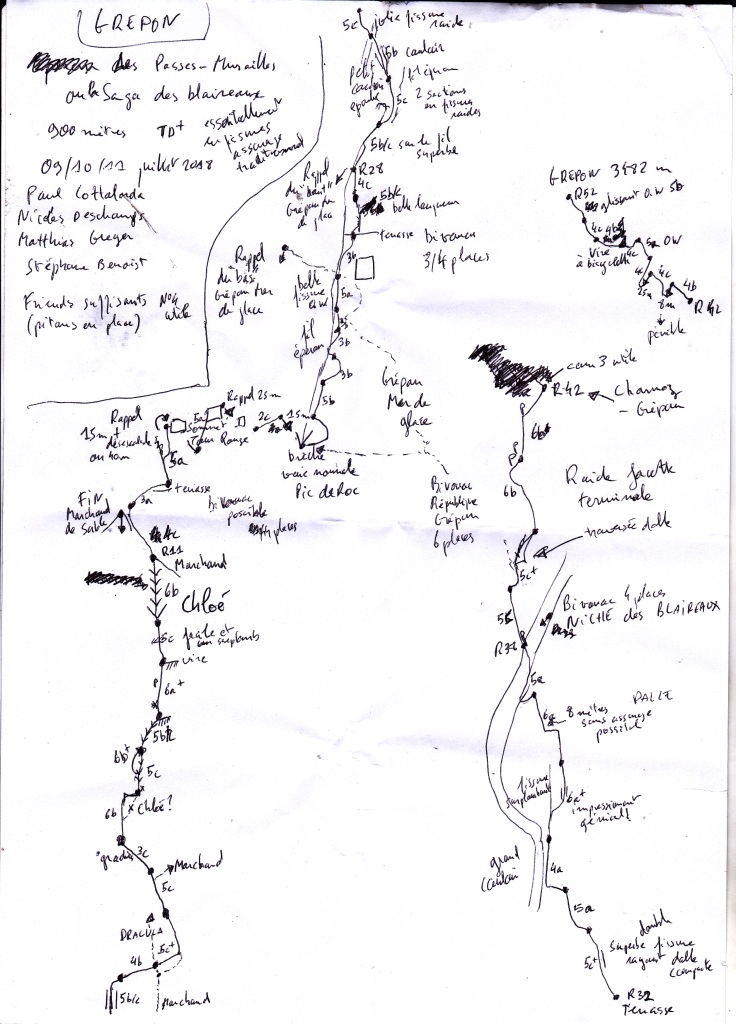 GREPON
des Passes-Murailles
ou la Saga des blaireaux
900 mètres TD+
essentiellement
en fissures
assurage
traditionnel
09/10/11 juillet 2018
Paul Cottalorda
Nicolas Deschamps
Matthias Greger
Stéphane Benoist
Friends suffisants No4
utile
(pitons en place)
5c
jolie fissure
raide
5b couloir
petit
couloir
5c 2 sections
en fissures
raides
5b/c sur le fil
superbe
Rappel
Grépon Mer
de glace
R28
4c
5b/c
belle longueur
terrasse bivouac
3/4 places
3b
Rappel
du bas
Grépon Mer
de glace
belle
fissure
5a
fil
éperon
3b
3b
5b
Grépon
Mer de
glace
brèche
voie normale
Pic de Roc
Rappel 25m
5a
sommet
Tour Rouge
2c
15m
Rappel
15m+
désescalade
ou 40m
5a
terrasse
3a
bivouac
possible
4 places
FIN
Marchand
de Sable
4c
R11
Marchand
6b
Chloé
5c facile et
en surplomb
vire
6a+
5b/c
6b+
5c
6b
Chloé?
gradins
3c
Marchand
5c
DRACULA
5c+
4b
5b/c
Marchand
Bivouac
République
Grépon
6 places
GREPON 3482 m
R52
glissant O.W 5b
4c
4b
4c
Vire
à bicyclette
5a OW
4c
4c
4b
25m
8m
pénible
cam 3 utile
R42
Charmoz
- Grépon
6b
6b
Raide facette
terminale
traversée dalle
5c+
5b
Bivouac 4 places
NICHE des BLAIREAUX
5a
DALLE
6a
8 mètres
sans assurage
possible
fissure
surplombante
6a+
impressionnant
génial!
grand
couloir
4a
5a
double
superbe fissure
rayant dalle
compacte
5c+
R32
Terrasse